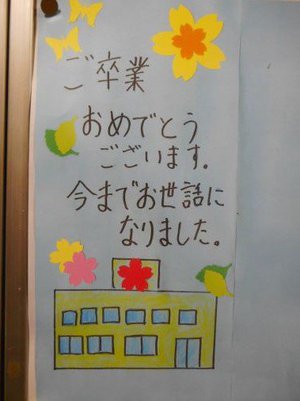 ご卒業
おめでとう
ございます。
今までお世話に
なりました。